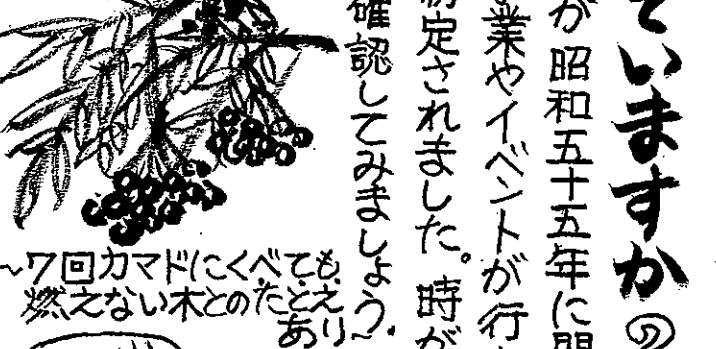 ていますかの
が昭和五十五年に開
業やイベントが行
定されました。時が
確認してみましょう。
～7回カマドにくべても
燃えない木とのたとえ
あり～